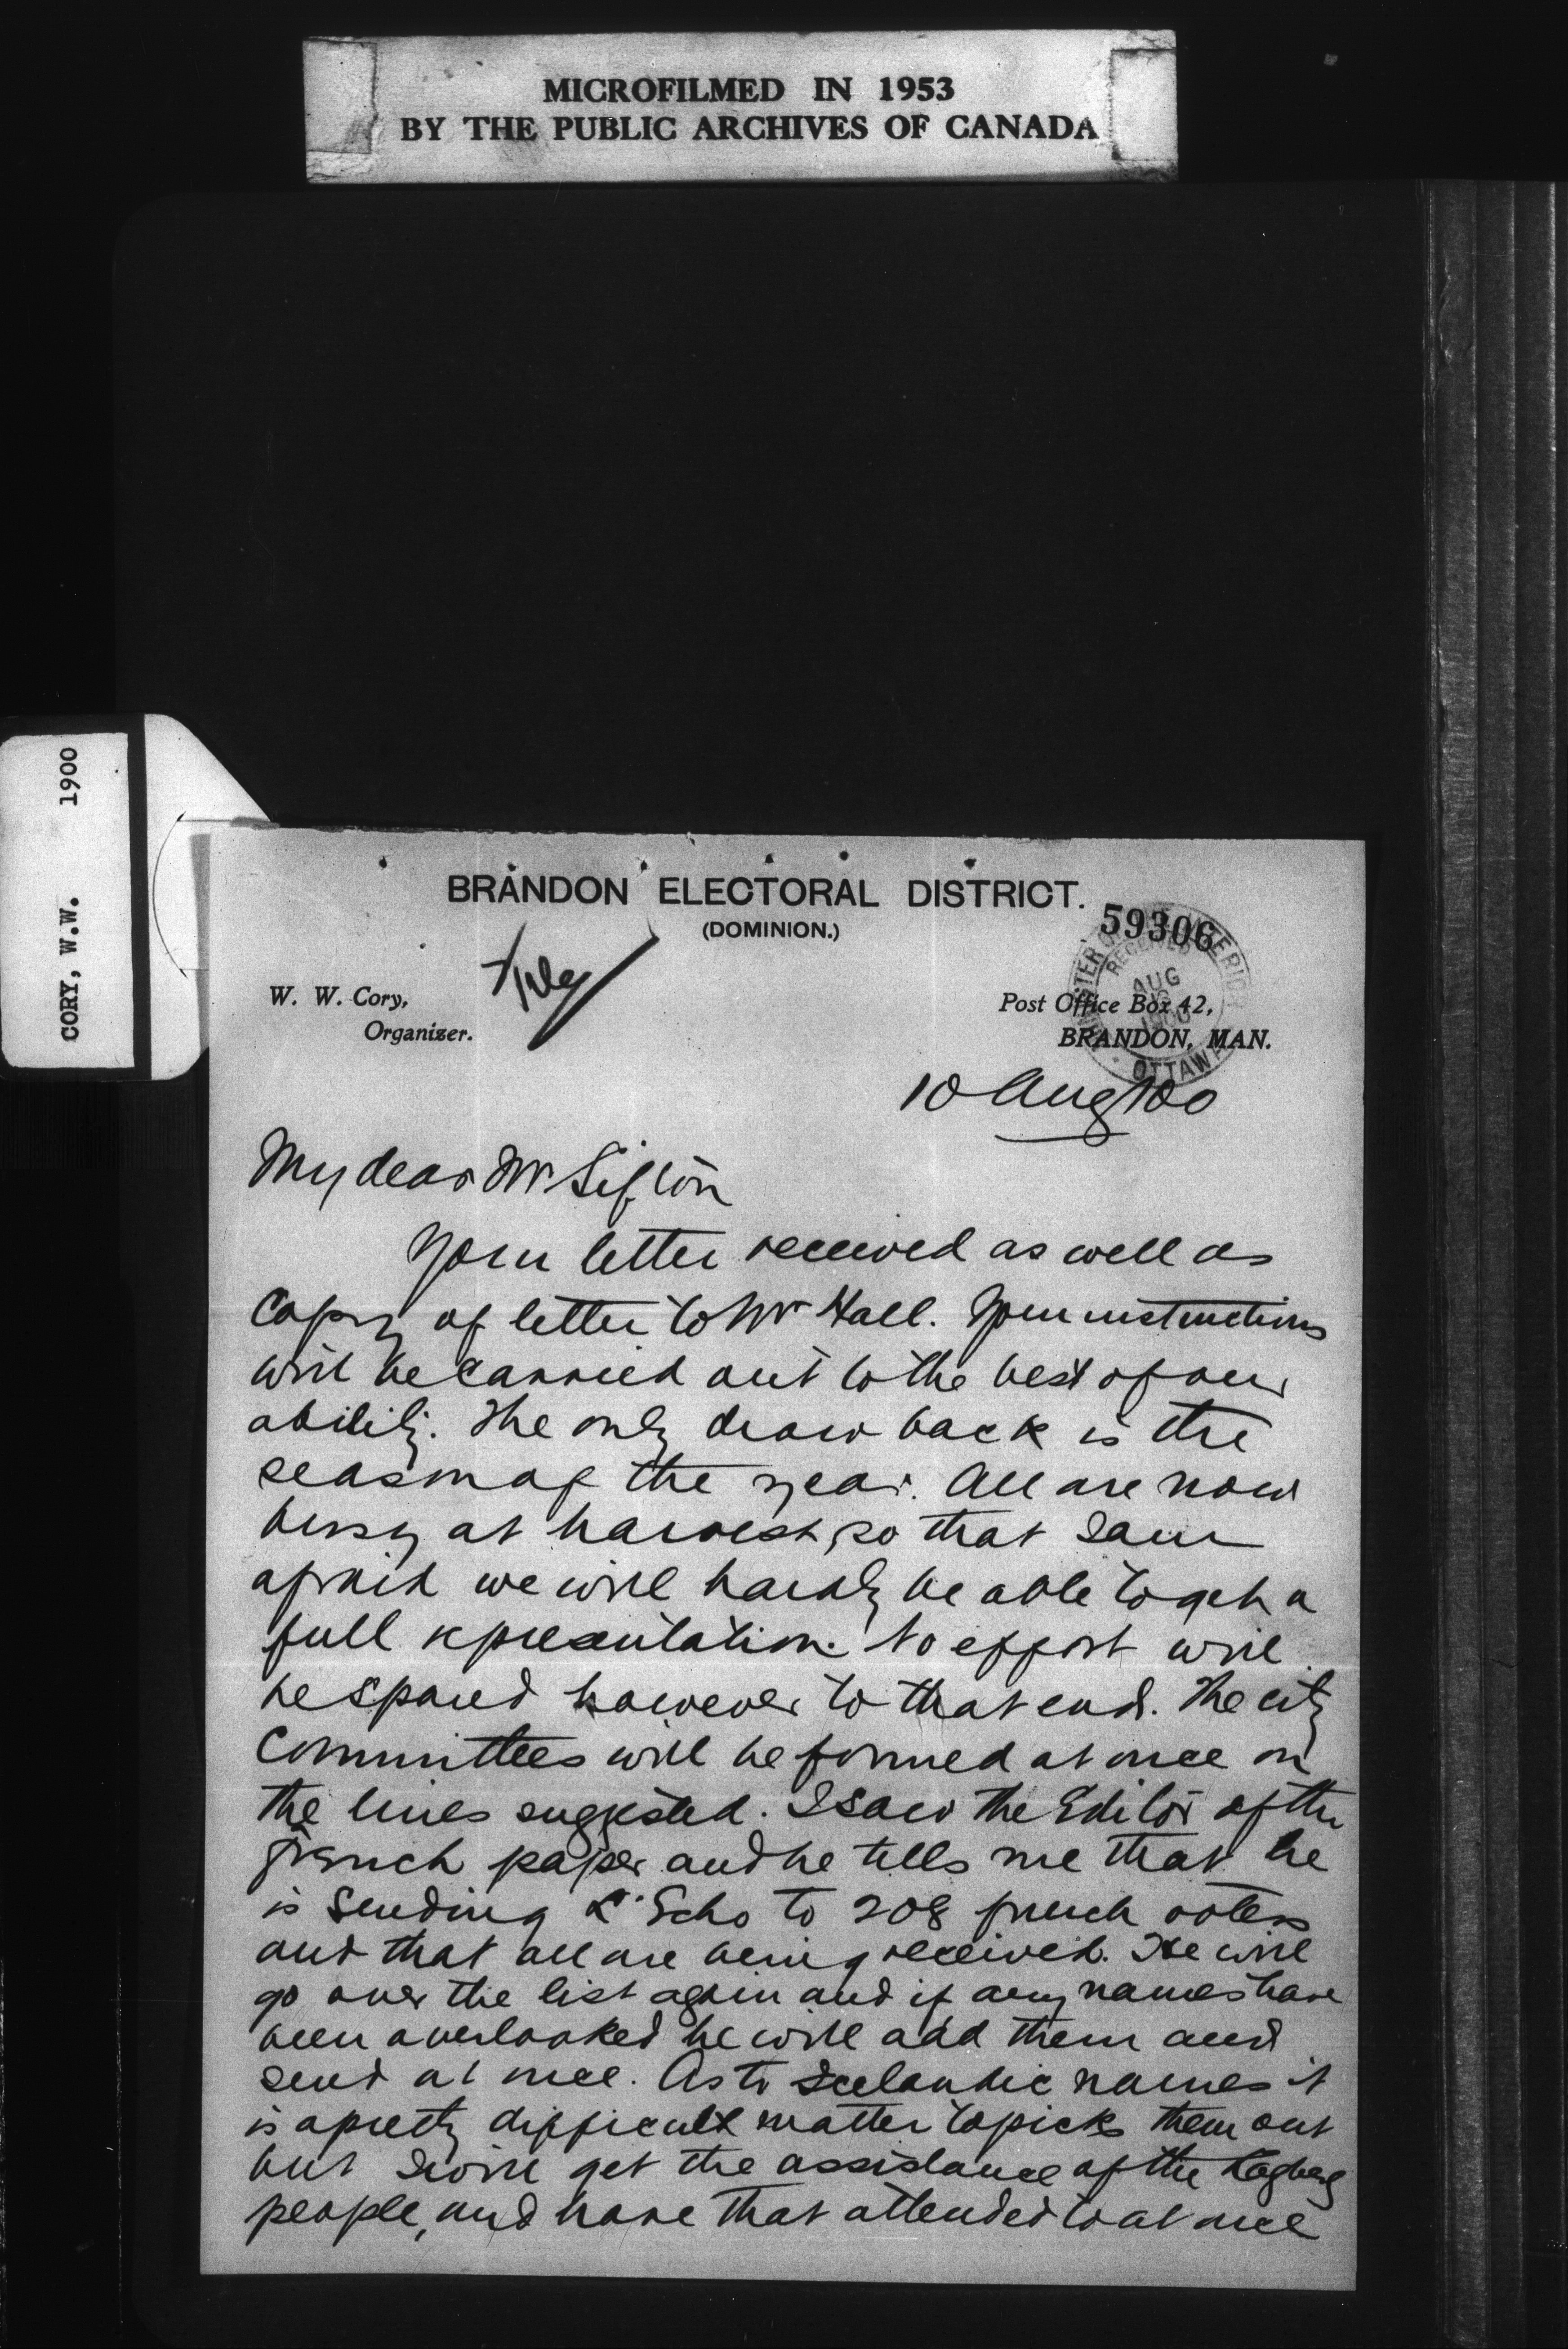 MICROFILMED IN 1953
BY THE PUBLIC ARCHIVES OF CANADA
CORY, W.W. 1900
BRANDON ELECTORAL DISTRICT.
(DOMINION.)
59306
W. W. Cory,
Organizer.
RECEIVED
AUG
OTTAWA
Post Office Box 42,
BRANDON, MAN.
10 Aug/00
My dear Mr Sifton
Your letter received as well as
Copy of letter to Mr Hall. Your instructions
will be carried out to the best of our
ability. The only draw back is the
season of the year. All are now
busy at harvest, so that I am
afraid we will hardly be able to get a
full representation. No effort will
be spared however to that end. The city
Committees will be formed at once on
the lines suggested. I saw the Editor of the
French paper and he tells me that he
is sending L'Echo to 208 french voters
and that all are being received. He will
go over the list again and if any names have
been overlooked he will add them and
send at once. As to Icelandic names it
is a pretty difficult matter to pick them out
but I will get the assistance of the Logberg
people, and have that attended to at once